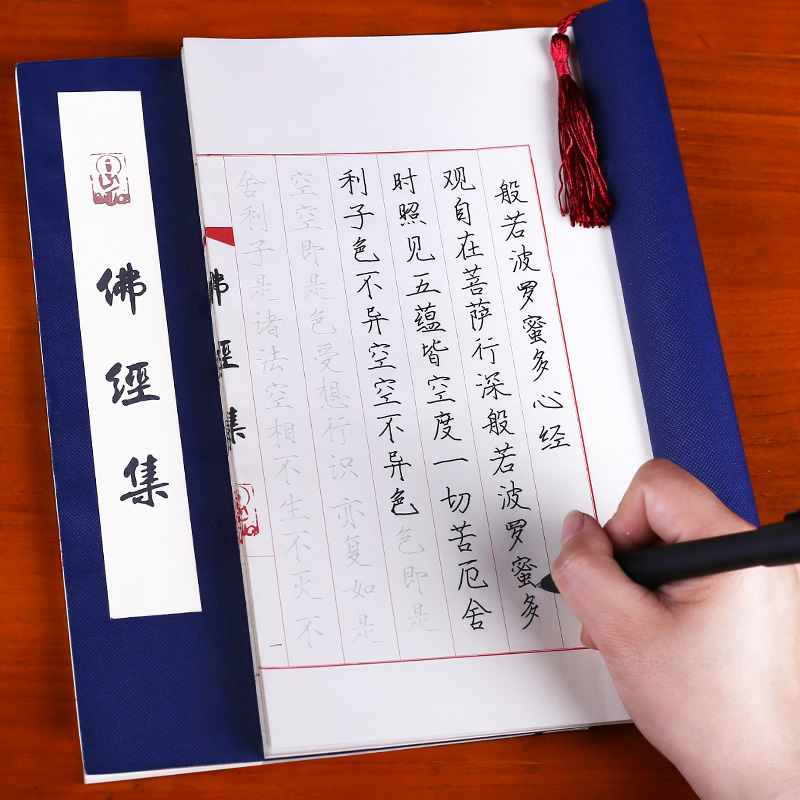 般若波罗蜜多心经
观自在菩萨行深般若波罗蜜多
时照见五蕴皆空度一切苦厄舍
利子色不异空空不异色色即是
空空即是色受想行识亦复如是
舍利子是诸法空相不生不灭不
一
佛經集
佛經集